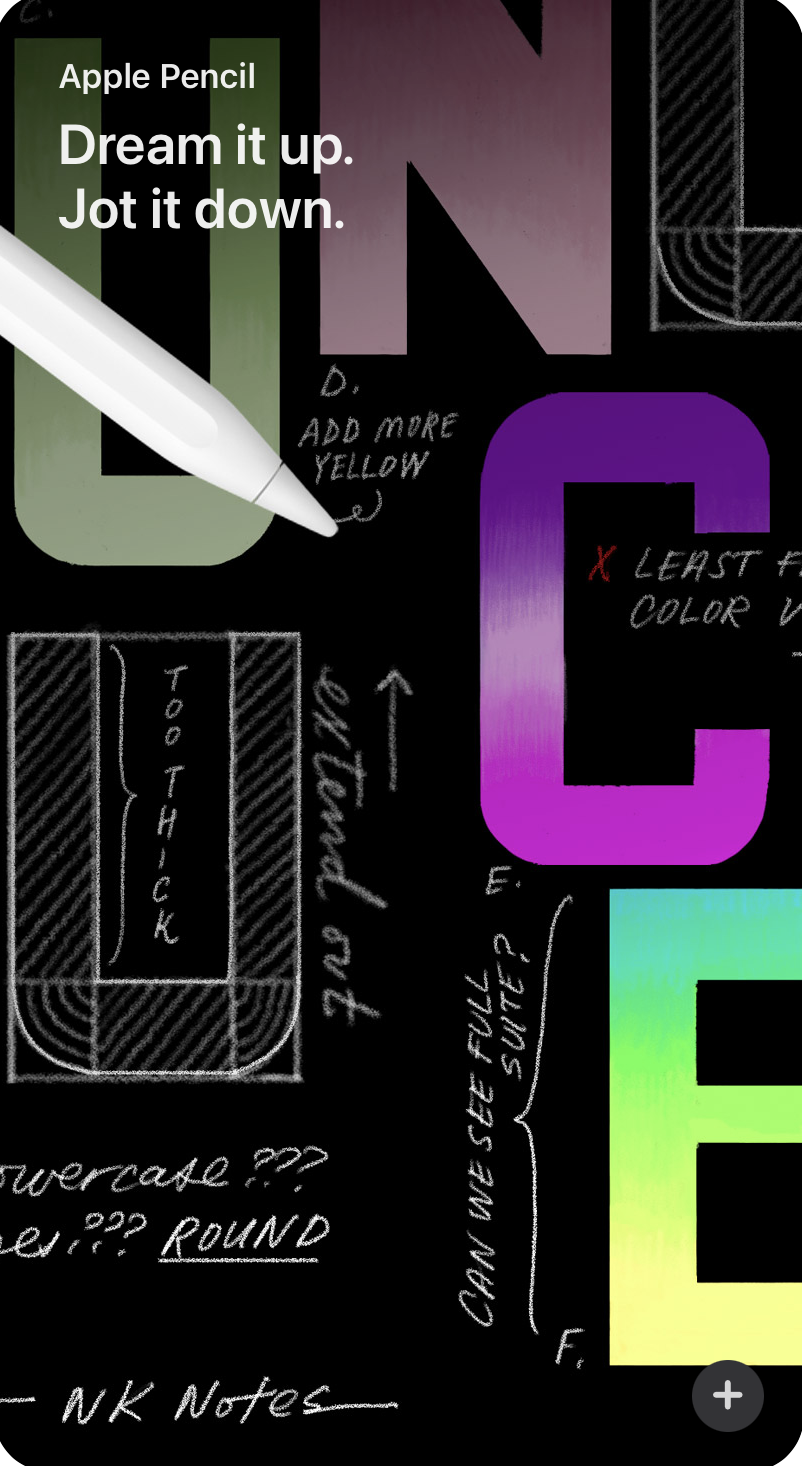 C.
Apple Pencil
Dream it up.
Jot it down.
U
N
D.
ADD MORE
YELLOW
C
X LEAST
COLOR
TOO THICK
extend out
E.
CAN WE SEE FULL
SUITE?
E
F.
owercase ???
??? ROUND
NK Notes